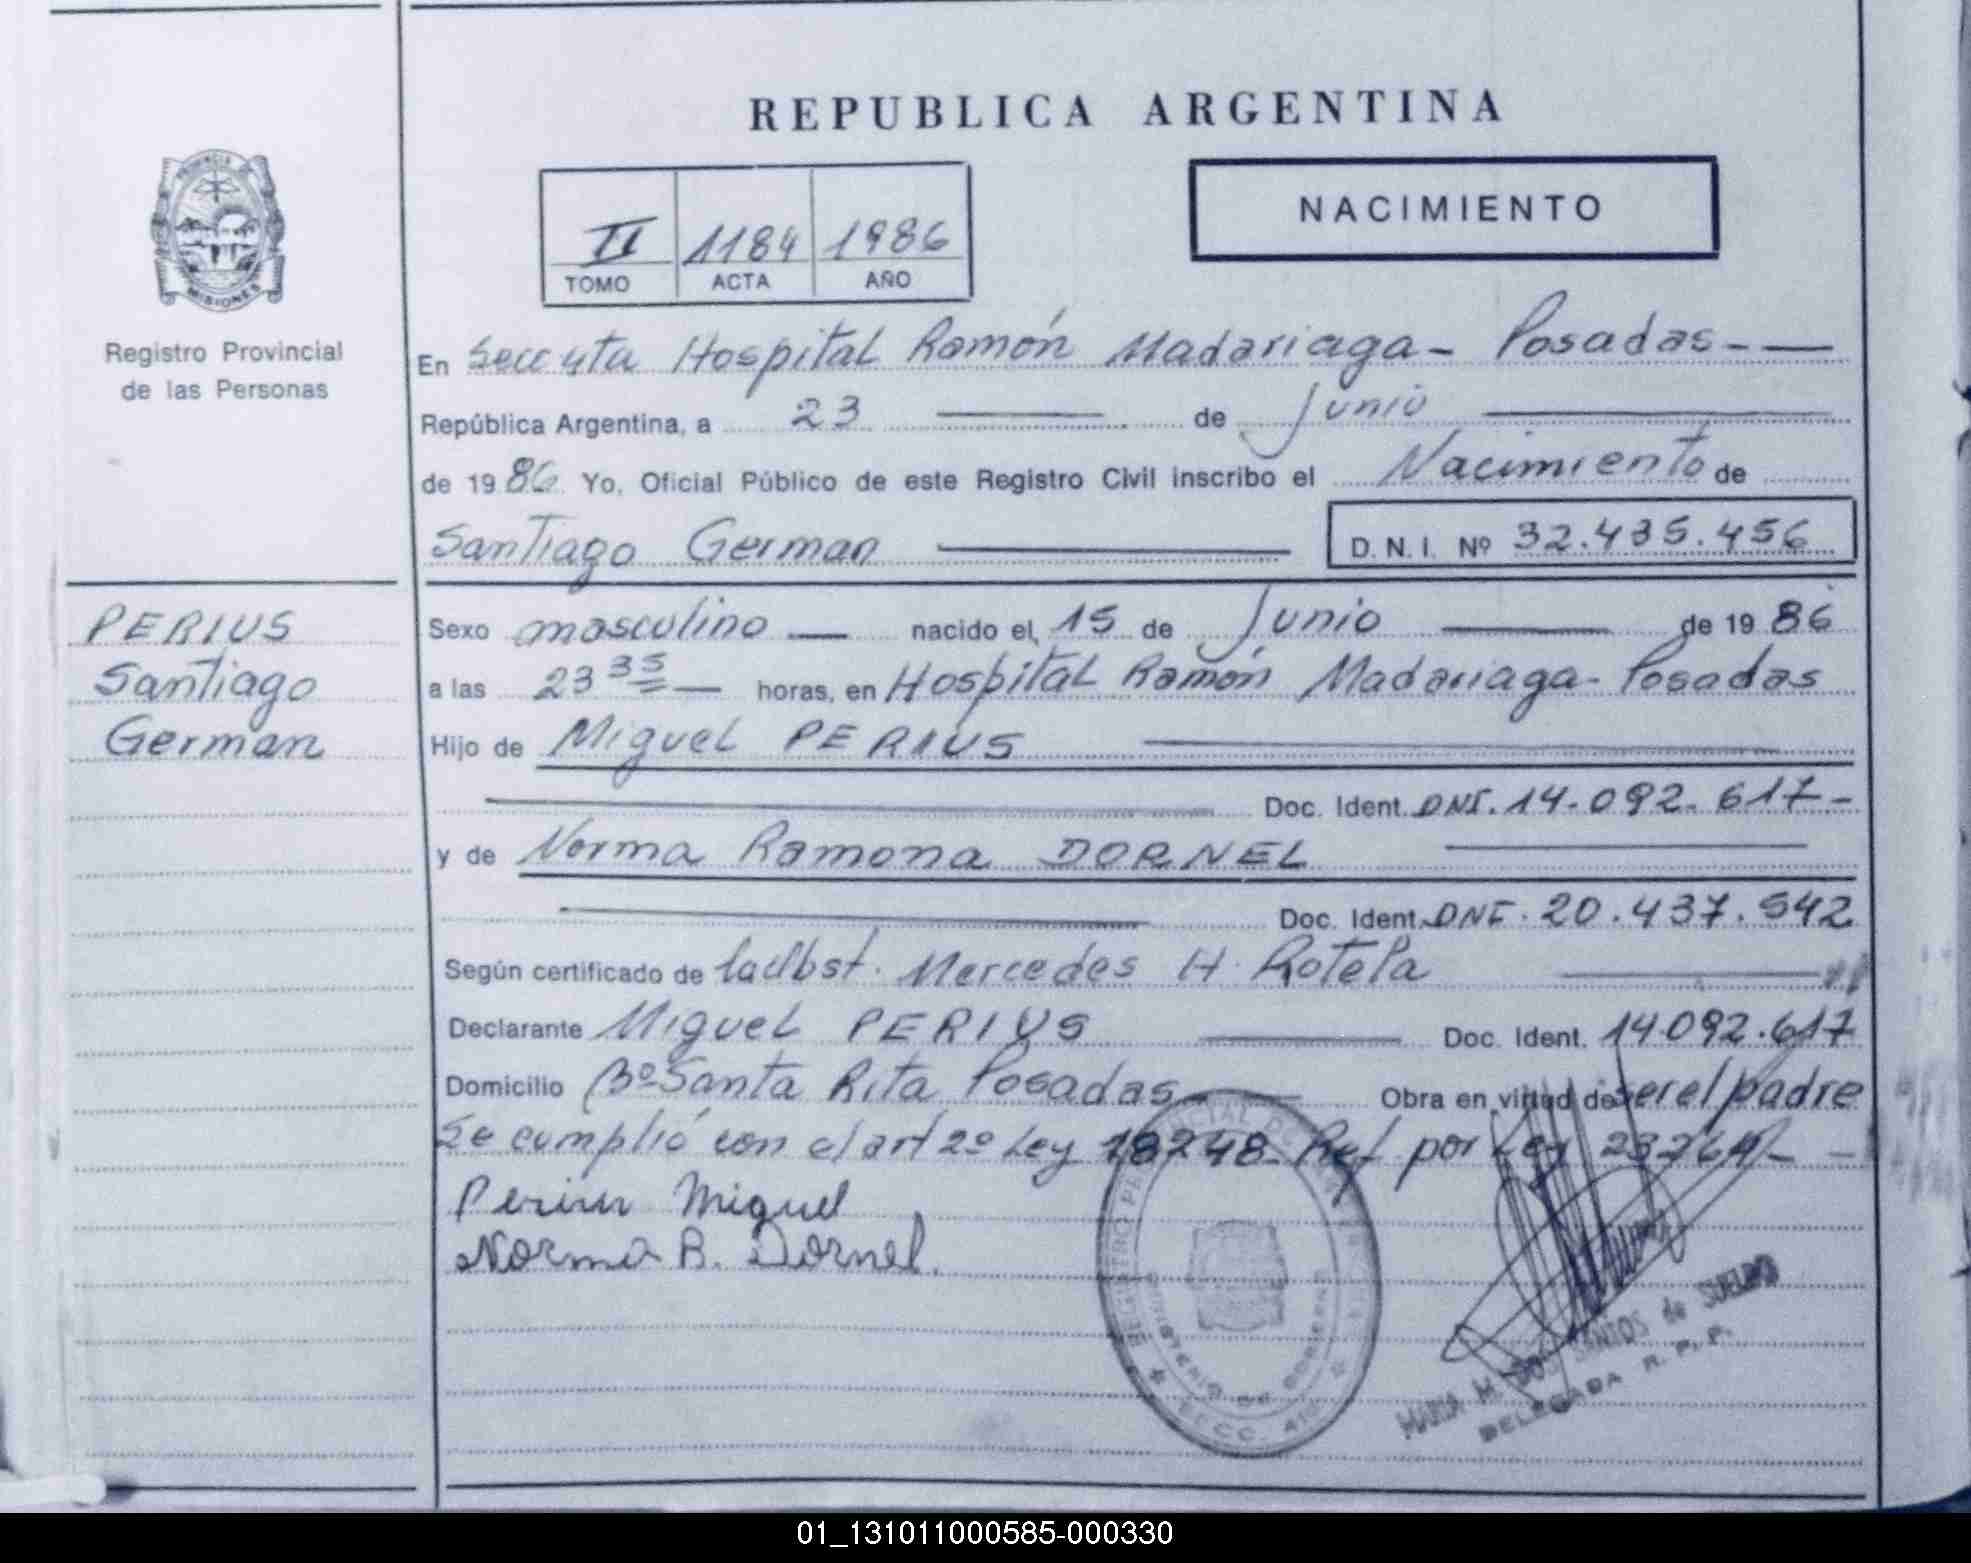 REPUBLICA ARGENTINA
NACIMIENTO
II 1184 1986
TOMO ACTA AÑO
PROVINCIA
MISIONES
Registro Provincial
de las Personas
En Secc 4ta Hospital Ramón Madariaga - Posadas -
República Argentina, a 23 de Junio
de 1986 Yo, Oficial Público de este Registro Civil inscribo el Nacimiento de
Santiago German
D. N. I. Nº 32.435.456
PERIUS
Santiago
German
Sexo masculino nacido el 15 de Junio de 1986
a las 23 35 horas, en Hospital Ramón Madariaga - Posadas
Hijo de Miguel PERIUS
Doc. Ident. DNI. 14.092.617 -
y de Norma Ramona DORNEL
Doc. Ident. DNI. 20.437.542
Según certificado de Mercedes H. Rotela
Declarante Miguel PERIUS Doc. Ident. 14.092.617
Domicilio Bº Santa Rita Posadas Obra en virtud de ser el padre
Se cumplió con el art 2º Ley 18248 - Ref. por Ley
Perius Miguel
Norma R. Dornel.
MINISTERIO DE GOBIERNO
MARIA M. DOS SANTOS de SUELDO
DELEGADA R. P. P.
01_131011000585-000330